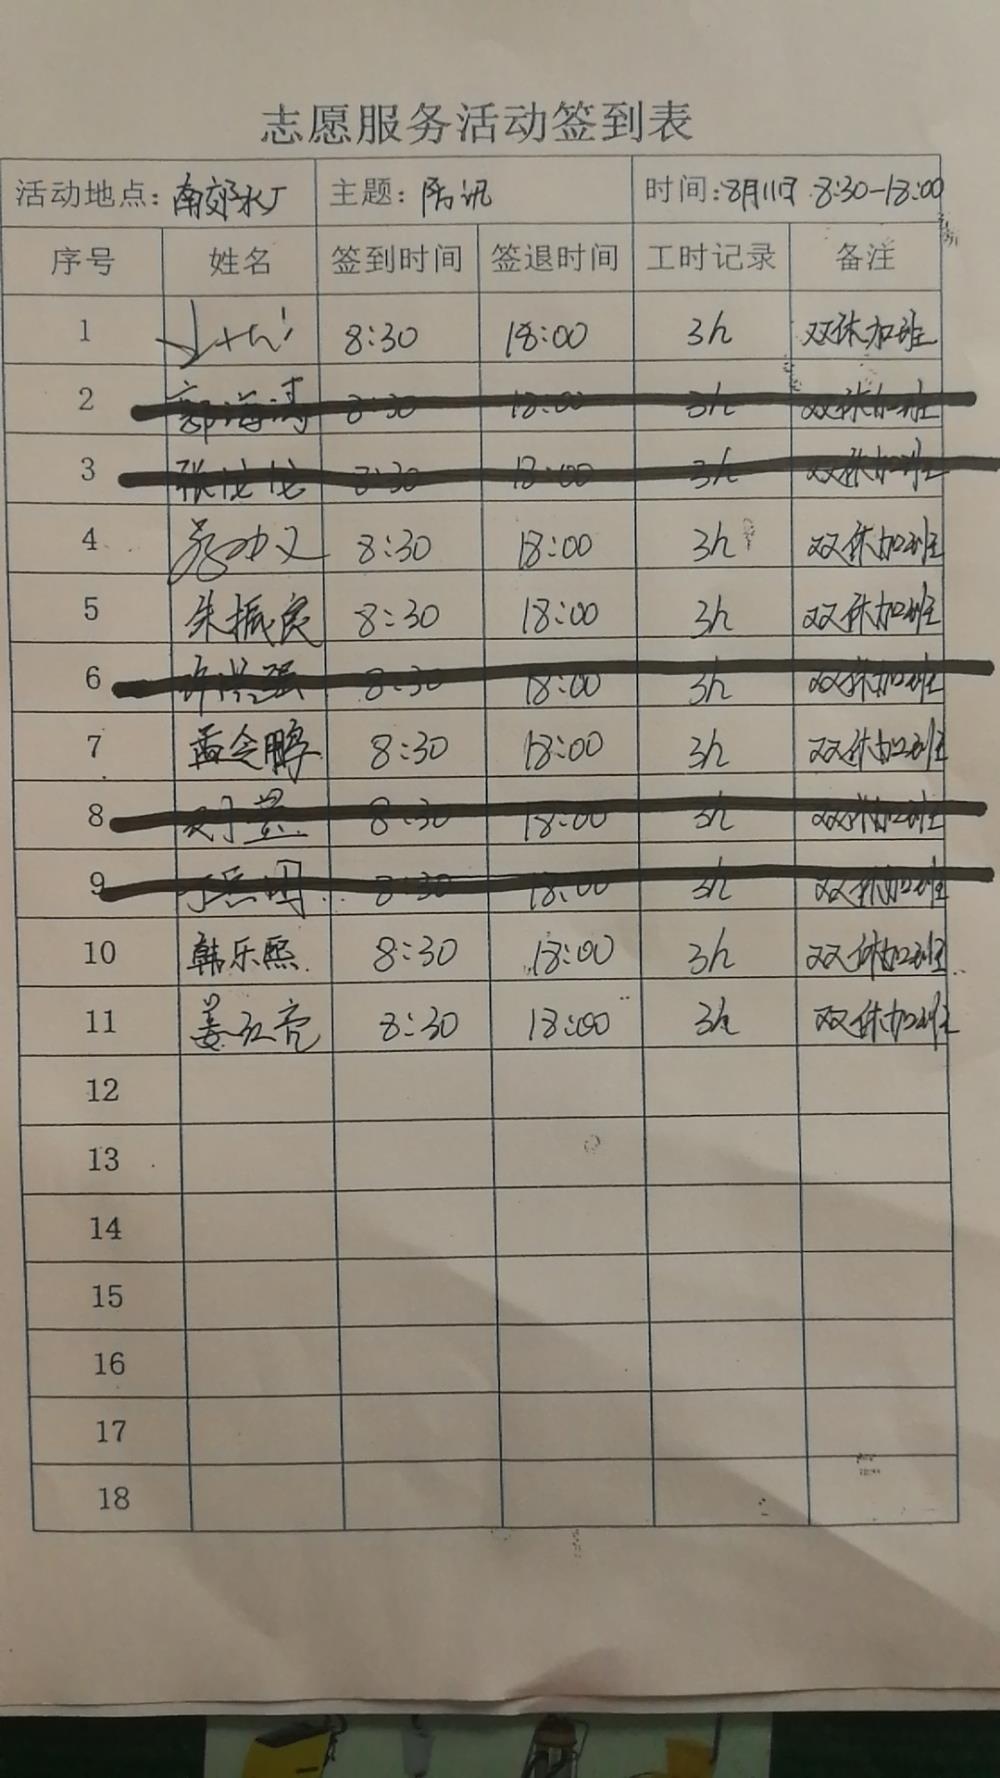 志愿服务活动签到表
活动地点:南郊水厂 主题:防汛 时间:8月11日 8:30-18:00
序号 姓名 签到时间 签退时间 工时记录 备注
1 8:30 18:00 3h 双休加班
2 郭海涛 8:30 18:00 3h 双休加班
3 张 8:30 18:00 3h 双休加班
4 8:30 18:00 3h 双休加班
5 朱振良 8:30 18:00 3h 双休加班
6 许洪强 8:30 18:00 3h 双休加班
7 孟令鹏 8:30 18:00 3h 双休加班
8 8:30 18:00 3h 双休加班
9 8:30 18:00 3h 双休加班
10 韩乐熙 8:30 18:00 3h 双休加班
11 姜红亮 8:30 18:00 3h 双休加班
12
13
14
15
16
17
18